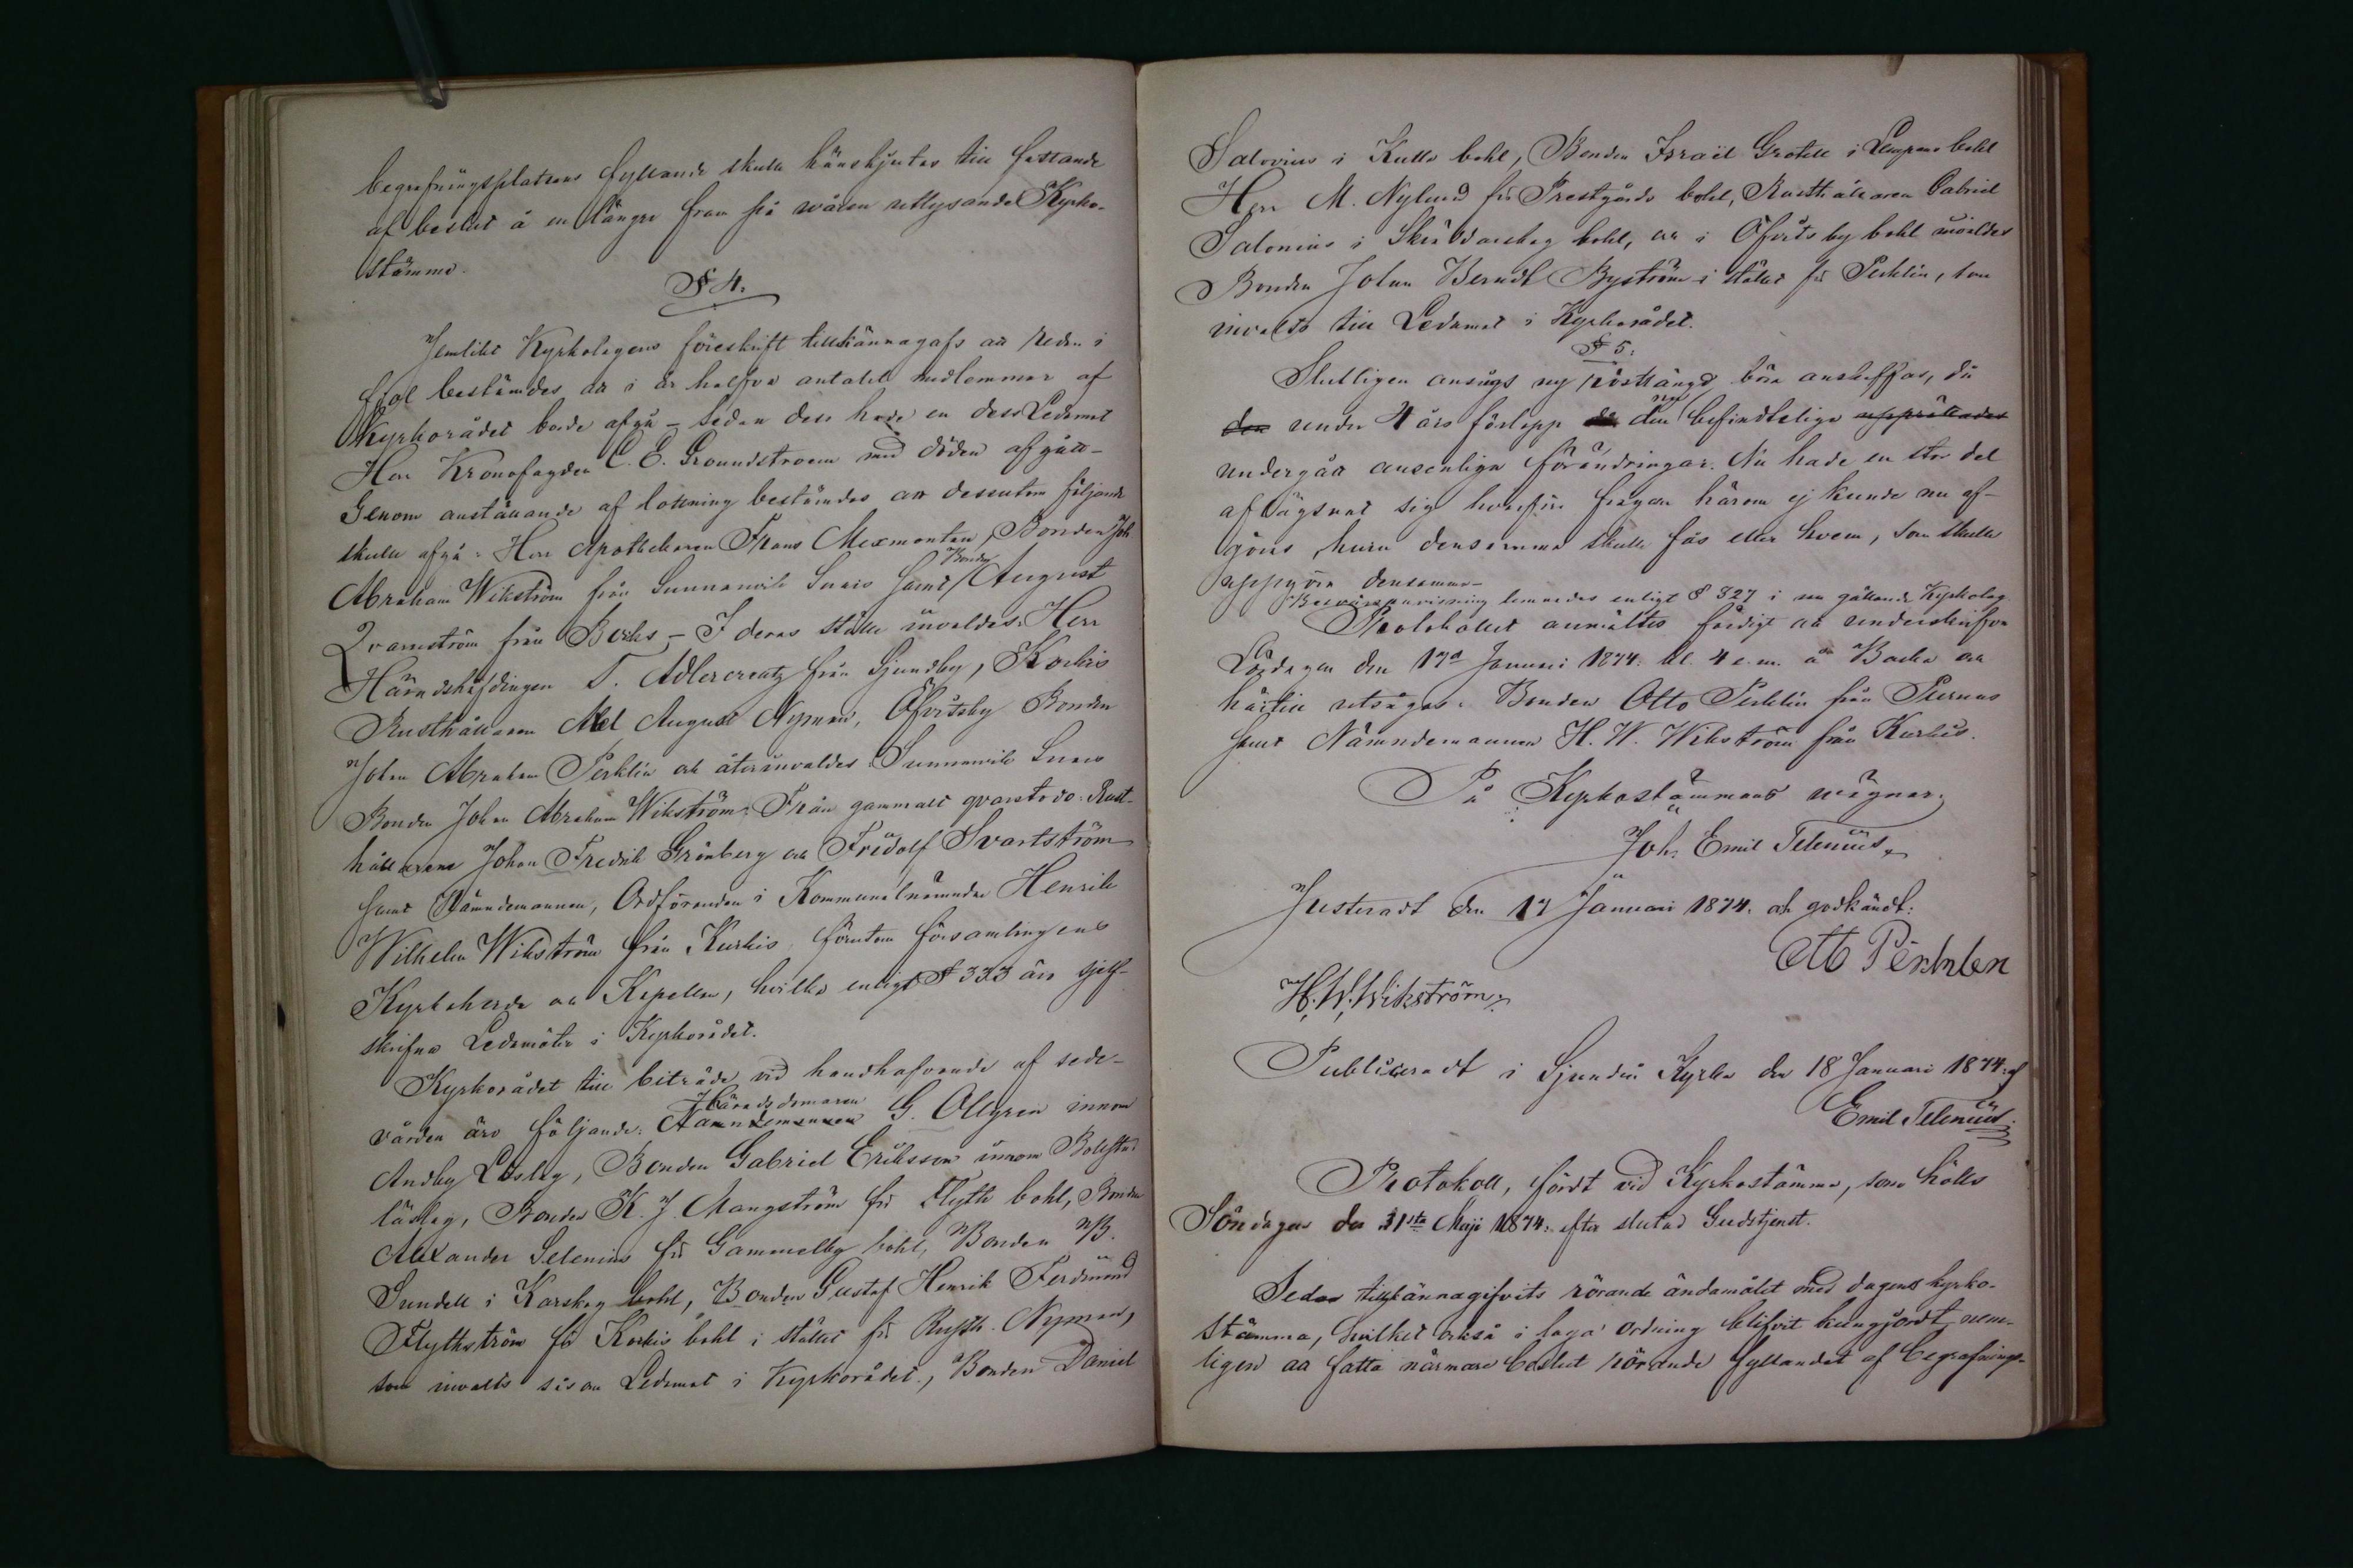 begrafningsplatsens fyllande skulle hänskjutas till fattande
af beslut å en längre fram på våren utlysande Kyrko-
stämma.
§ 4.
Jemlikt Kyrkolagens föreskrift tillkännagafs att redan i
fjol bestämdes att i år halfva antalet medlemmar af
Kyrkorådet borde afgå – sedan dess hade en dess Ledamot
Herr Kronofogden C. E. Groundstroem med döden afgått –
Genom anställande af lottning bestämdes att dessutom följande
skulle afgå: Herr Apothekaren Frans Mexmontan, Bonden Joh.
Abraham Wikström från Sunnanvik Sunis samt Bonden August
Qvarnström från Böhls – I deras ställe invaldes: Herr
Häradshöfdingen T. Adlercreutz från Sjundby, Korkis
Rusthållaren Abel August Nyman, Öfvitsby Bonden
Johan Abraham Perklin och återinvaldes: Sunnanvik Sunis
Bonden Johan Abraham Wikström: Från gammalt qvarstodo: Rust-
hållarene Johan Fredrik Grönberg och Fridolf Svartström
samt Nämndemannen, Ordföranden i Kommunalnämnden Henrik
Wilhelm Wikström från Kurkis, förutom församlingens
Kyrkoherde och Kapellan, hvilka enligt § 333 äro sjelf-
skrifna Ledamöter i Kyrkorådet.
Kyrkorådet till biträde vid handhafvande af sede-
vården äro följande: Häradsdomaren
Nämndemannen G. Ollgren innom
Andby Läslag, Bonden Gabriel Eriksson innom Bollstad
läslag, Bonden K. J. Mangström för Flyth bohl, Bonden
Alexander Selenius för Gammelby bohl, Bonden B.
Sundell i Karskog bohl, Bonden Gustaf Henrik Ferdinand
Flythström för Korkis bohl i stället för Rusth. Nyman,
som invalts såsom Ledamot i Kyrkorådet, Bonden Daniel
Salovius i Kulla bohl, Bonden Israël Grotell i Lempans bohl
Herr M. Nylund för Prestgårds bohl, Rusthållaren Gabriel
Salonius i Sköldarskog bohl, och i Öfvitsby bohl invaldes
Bonden Johan Berndt Byström i stället för Perklin, som
invalts till Ledamot i Kyrkorådet.
§ 5.
Slutligen ansågs ny röstlängd böra anskaffas, då
den under 4 års förlopp den nu befindtliga upprättades
undergått ansenliga förändringar. Nu hade en stor del
aflägsnat sig hvarför frågan härom ej kunde nu af-
göras, huru densamma skulle fås eller hvem, som skulle
uppgöra densamma –
Besvärsanvisning lemnades enligt § 327 i nu gällande Kyrkolag
Protokollet anmältes färdigt att underskrifva
Lördagen den 17de Januari 1874. kl. 4 e.m. å Backa och
härtill utsågos: Bonden Otto Perklin från Purnus
samt Nämndemannen H. W. Wikström från Kurkis.
På Kyrkostämmans vägnar:
Joh. Emil Telenius.
Justeradt den 17 Januari 1874. och godkändt:
Otto Perklen
H. W. Wikström.
Publiceradt i Sjundeå Kyrka den 18 Januari 1874. af
Emil Telenius.
Protokoll, fördt vid Kyrkostämma, som hölls
Söndagen den 31sta Maji 1874. efter slutad Gudstjenst.
Sedan tillkännagifvits rörande ändamålet med dagens kyrko-
stämma, hvilket också i laga ordning blifvit kungjordt, nem-
ligen att fatta närmare beslut rörande fyllandet af begrafnings-